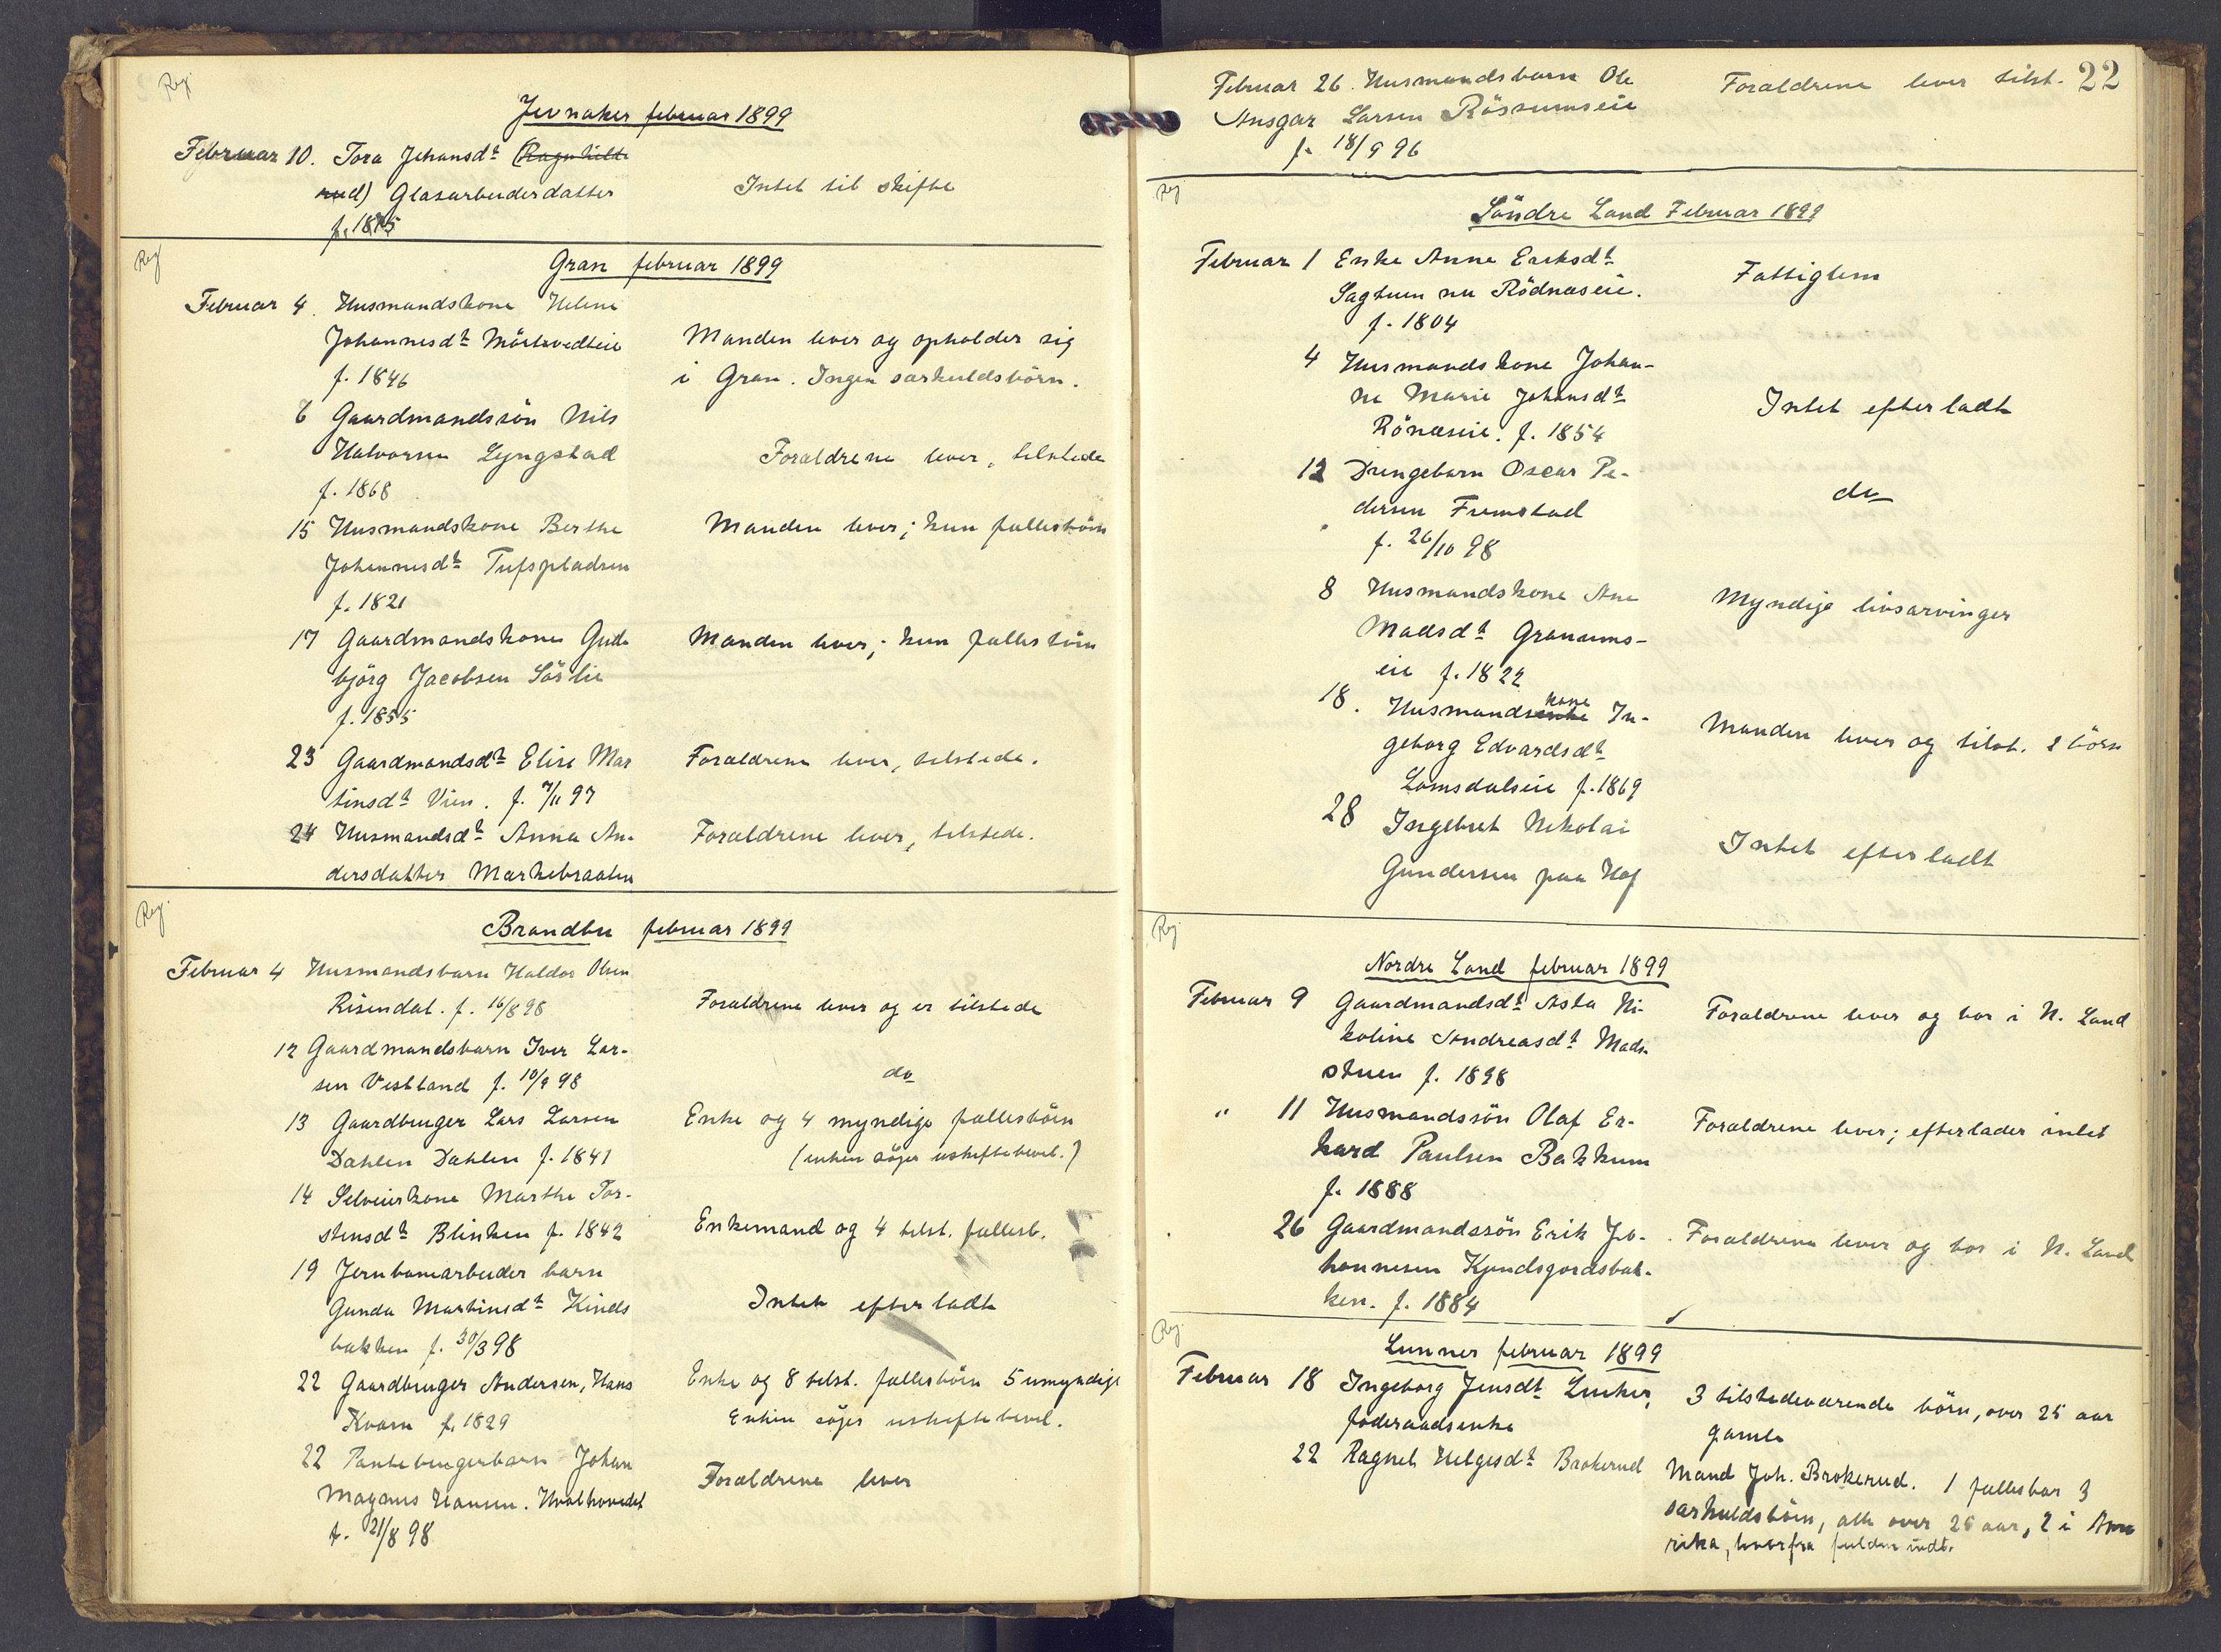 Reg.
Jevnaker februar 1899
Februar 10. Tora Johansdt (Ragnhilds
rud) Glasarbeiderdatter
Intet til skifte
f. 1875
Reg
Gran februar 1899
Februar 4. Husmandskone Helene
Johannesdt
f. 1846
Manden lever og opholder sig
i Gran. Ingen særkuldsbörn.
6 Gaardmandssön Nils
Halvorsen Lyngstad
f. 1868
Forældrene lever, tilstede
15 Husmandskone Berthe
Johannesdt Tufspladsen
f. 1821
Manden lever; kun fællesbörn
17 Gaardmandskone Gud
björg Jacobsen Sörlie
f. 1855
Manden lever; kun fællesbörn
23 Gaardmandsdt Elise Mar
tinsdt Vien. f. 7/11 97
Forældrene lever, tilstede.
24 Husmandsdt Anna An-
dersdatter Mærkebraaten
Forældrene lever, tilstede.
Reg.
Brandbu februar 1899
Februar 4 Husmandsbarn Haldor Olsen
Risendal. f. 16/8 98
Forældrene lever og er tilstede
12 Gaardmandsbarn Iver Lar-
sen Vestland f. 10/9 98
do
13 Gaardbruger Lars Larsen
Dahlen Dahlen f. 1841
Enke og 4 myndige fællesbörn
(enken söger uskiftebevil.)
14 Selveierkone Marthe Tor-
stensdt Blinken f. 1842
Enkemand og 4 tilst. fællesb.
19 Jernbanearbeider barn
Gunda Martinsdt Kinds
bakken f. 30/3 98
Intet efterladt
22 Gaardbruger Andersen, Hans
Kvarn f. 1829
Enke og 8 tilst. fællesbörn 5 umyndige
Enken söger uskiftebevil.
22 Pantebrugerbarn Johan
Magnus Hansen. Hvalhovedet
f. 21/8 98
Forældrene lever
22
Februar 26. Husmandsbarn Ole
Ansgar Larsen Rössumseie
f. 18/9 96
Forældrene lever tilst.
Reg
Söndre Land Februar 1899
Februar 1 Enke Anne Eriksdt
Sagtuen nu Rödnæseie.
f. 1804
Fattiglem
4 Husmandskone Johan-
ne Marie Johansdt
Rönæseie. f. 1854
Intet efterladt
12 Drengebarn Oscar Pe-
dersen Fremstad
f. 26/10 98
do
8 Husmandskone Ane
Madsdt Granums-
eie f. 1822
Myndige livsarvinger
18. Husmandsenke kone In-
geborg Edvardsdt
Lomsdalseie f. 1869
Manden lever og tilst. 2 börn
28 Ingebret Nikolai
Gundersen paa Hof
Intet efterladt
Reg
Nordre Land februar 1899
Februar 9 Gaardmandsdt Asta Ni-
koline Andreasdt Mads-
stuen f. 1898
Forældrene lever og bor i N. Land
" 11 Husmandssön Olaf Er-
hard Paulsen Bakkum
f. 1888
Forældrene lever; efterlader intet
26 Gaardmandssön Erik Jo-
hannesen Kjendsgordsbak-
ken. f. 1884
Forældrene lever og bor i N. Land
Reg.
Lunner februar 1899
Februar 18 Ingeborg Jensdt Lunker,
föderaadsenke
3 tilstedeværende börn, over 25 aar
gamle
22 Ragnel Helgesdt Brokerud
Mand Joh. Brokerud. 1 fællesbar 3
særkuldsbörn, alle over 25 aar, 2 i Ame
rika, hvorfra